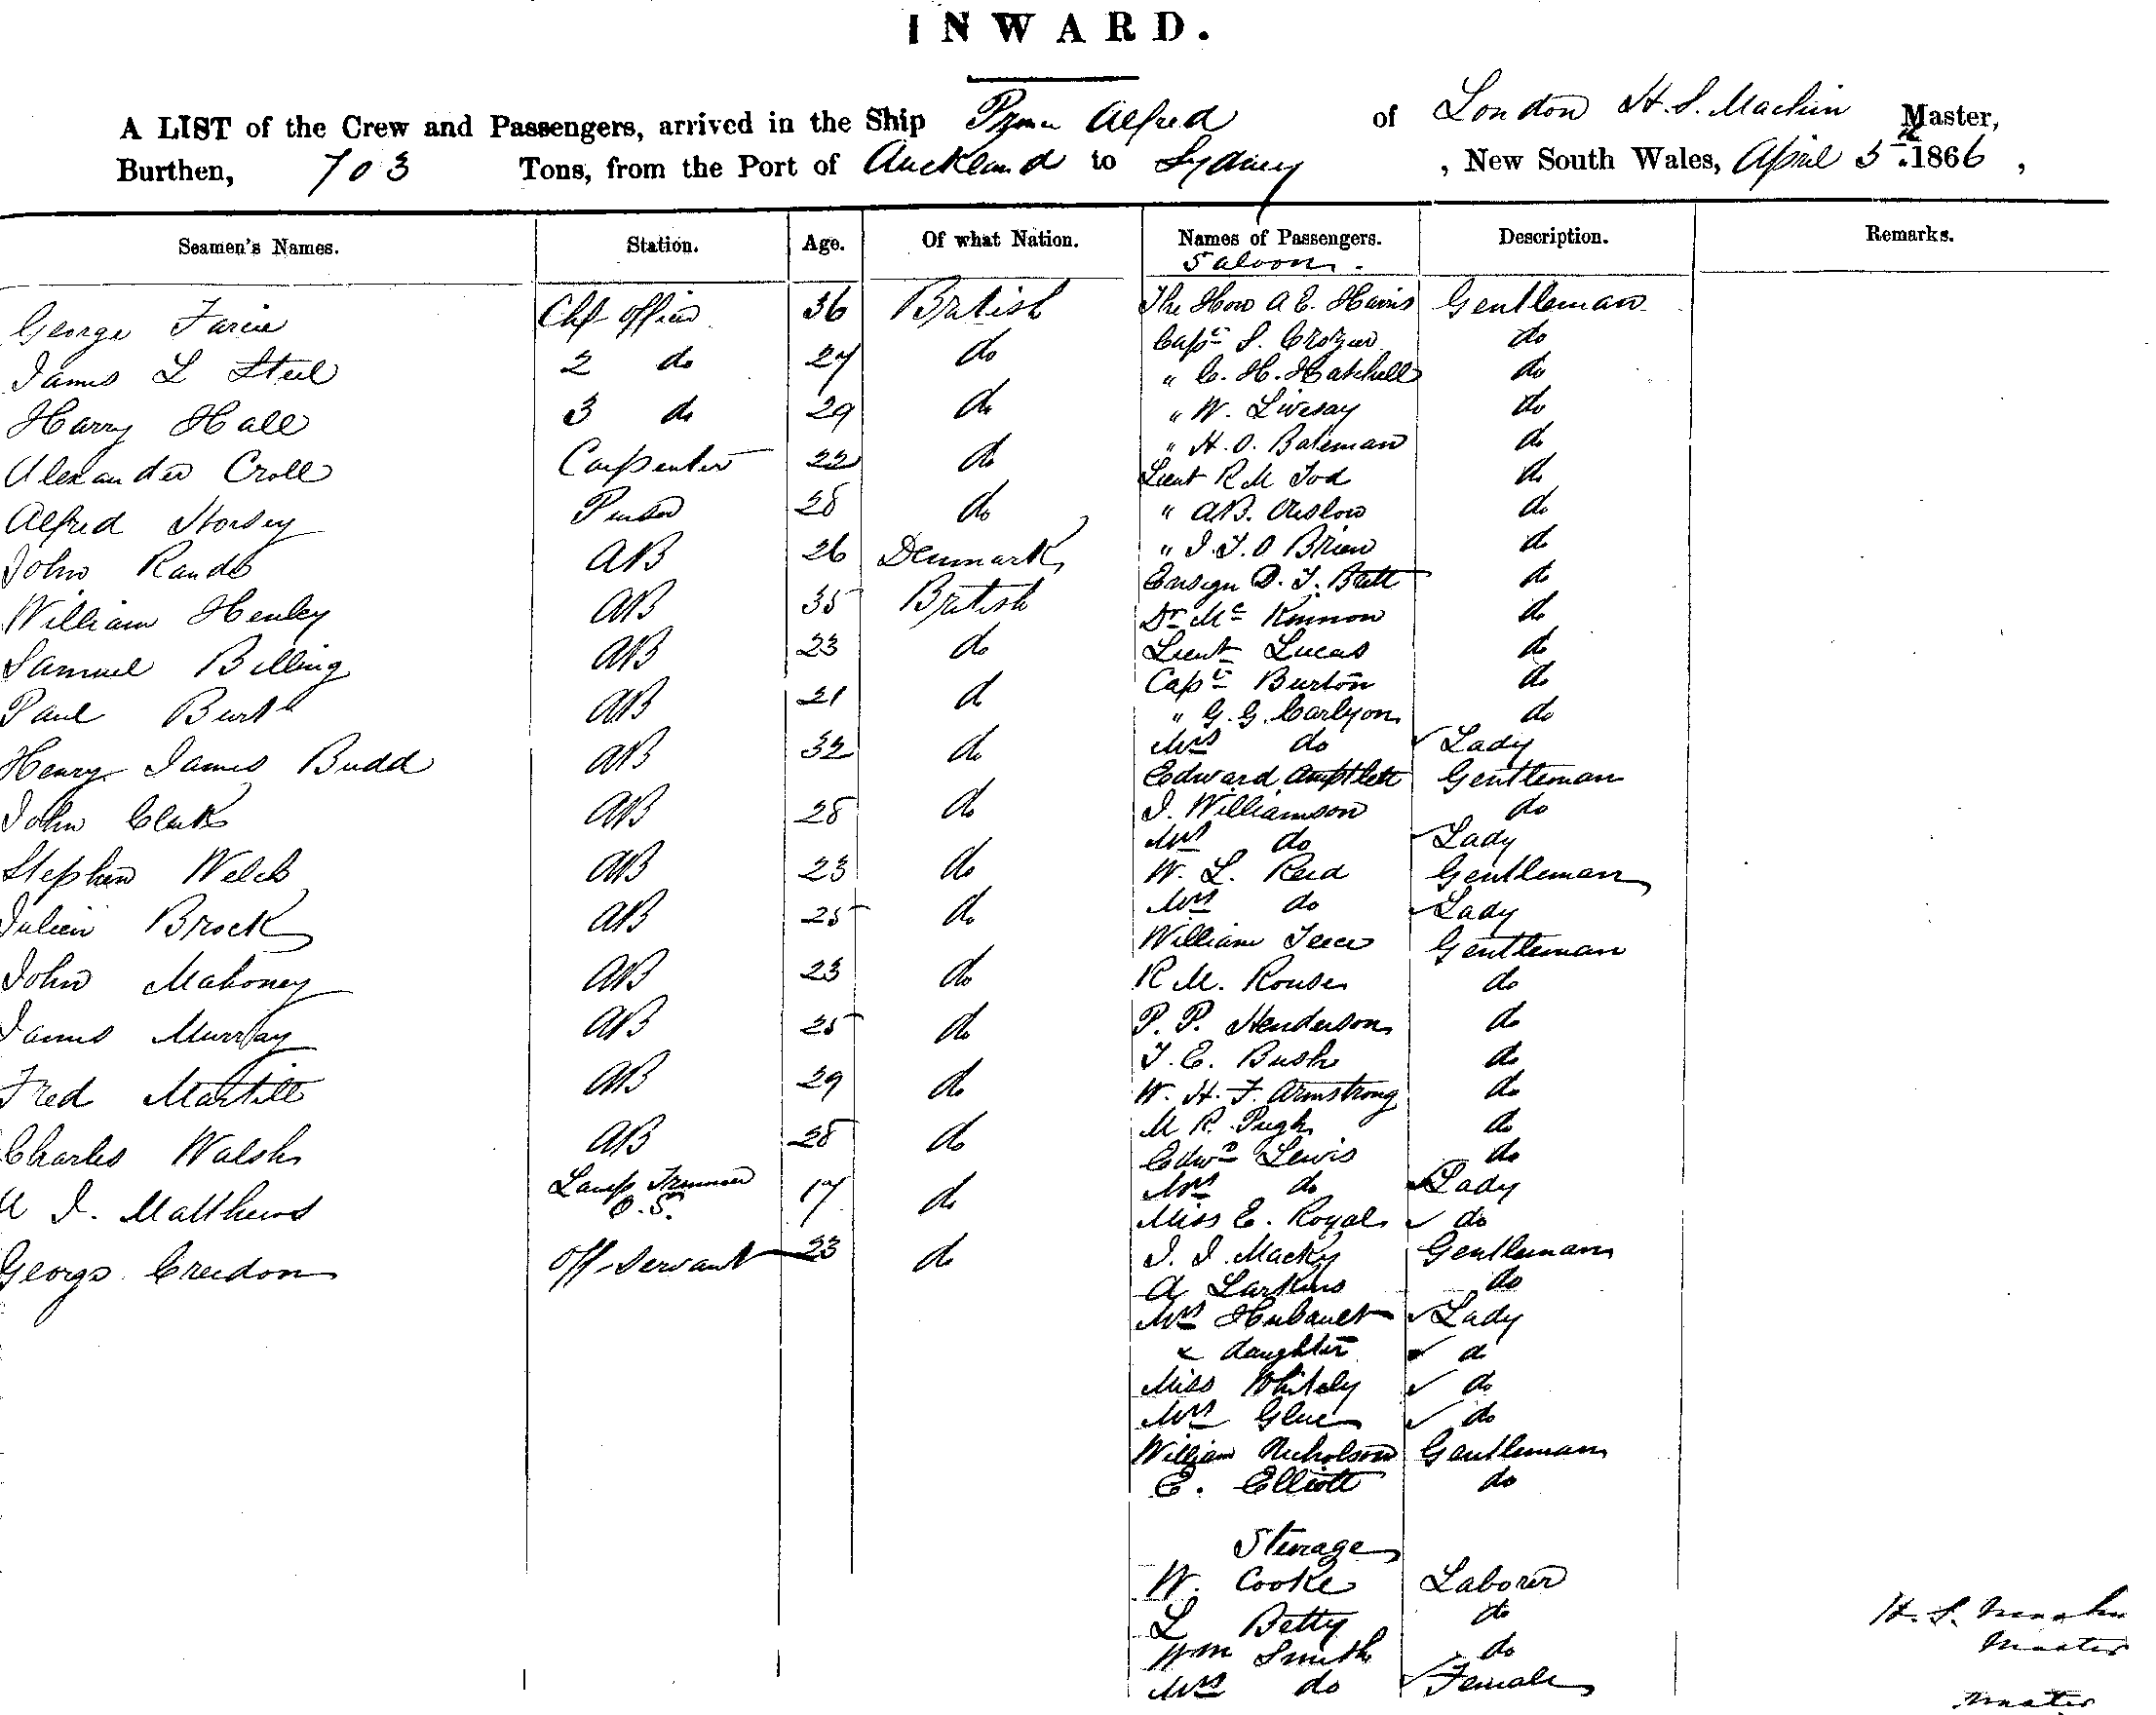 INWARD.
A LIST of the Crew and Passengers, arrived in the Ship Alfred of London H. S. Machin Master,
Burthen, 703 Tons, from the Port of Auckland to Sydney, New South Wales, April 5th 1866,
Seamen's Names. Station. Age. Of what Nation. Names of Passengers. Description. Remarks.
Saloon.
George Farie Chf Officer 36 British
James L Steel 2 do 27 do
Harry Hall 3 do 29 do
Alexander Croll Carpenter 22 do
Alfred Horsey Purser 28 do
John Rands AB 26 Denmark
William Henley AB 35 British
Samuel Billing AB 23 do
Paul Burt AB 21 d
Henry James Budd AB 32 do
John Clark AB 28 do
Stephen Welch AB 23 do
Julien Brock AB 25 do
John Mahoney AB 23 do
James Murray AB 25 do
Fred Martill AB 29 do
Charles Walsh AB 28 do
J. Matthews Lamp Trimmer O.S. 17 do
George Creedon Off Servant 23 do
The Hon A E. Harris Gentleman
Capt S. Crozier do
" C. H. Hatchell do
" W. Livesay do
" H. O. Bateman do
Lieut R M Tod do
" A.B. Onslow do
" J. T. O Brien do
Ensign D. T. Brett do
Dr Mc Kinnon do
Lieut Lucas do
Capt Burton do
" G. G. Carlyon do
Mrs do Lady
Edward Amphlett Gentleman
J. Williamson do
Mrs do Lady
W. L. Reid Gentleman
Mrs do Lady
William Teece Gentleman
R M. Rouse do
P. P. Henderson do
T. E. Bush do
W. H. F. Armstrong do
M R. Pugh do
Edwd Lewis do
Mrs do Lady
Miss E. Royal do
J. J. Macky Gentleman
A Larkins do
Mrs Lady
& daughter d
Miss Whitely do
Mrs Glue do
William Nicholson Gentleman
E. Elliott do
Steerage
W. Cooke Laborer
L Betty do
Wm Smith do
Mrs do Female
H. S. Machin
Master
Master